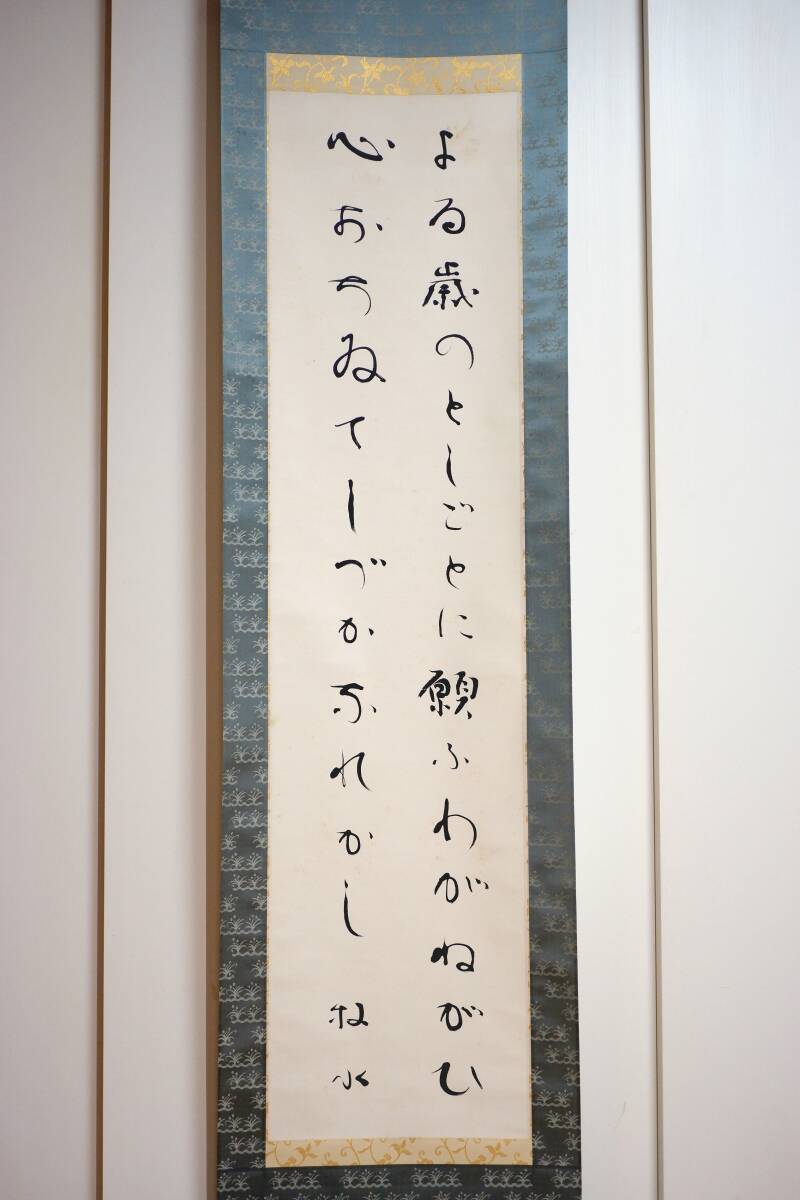 よる歳のとしごとに願ふわがねがひ
心おちゐてしづかなれかし 牧水